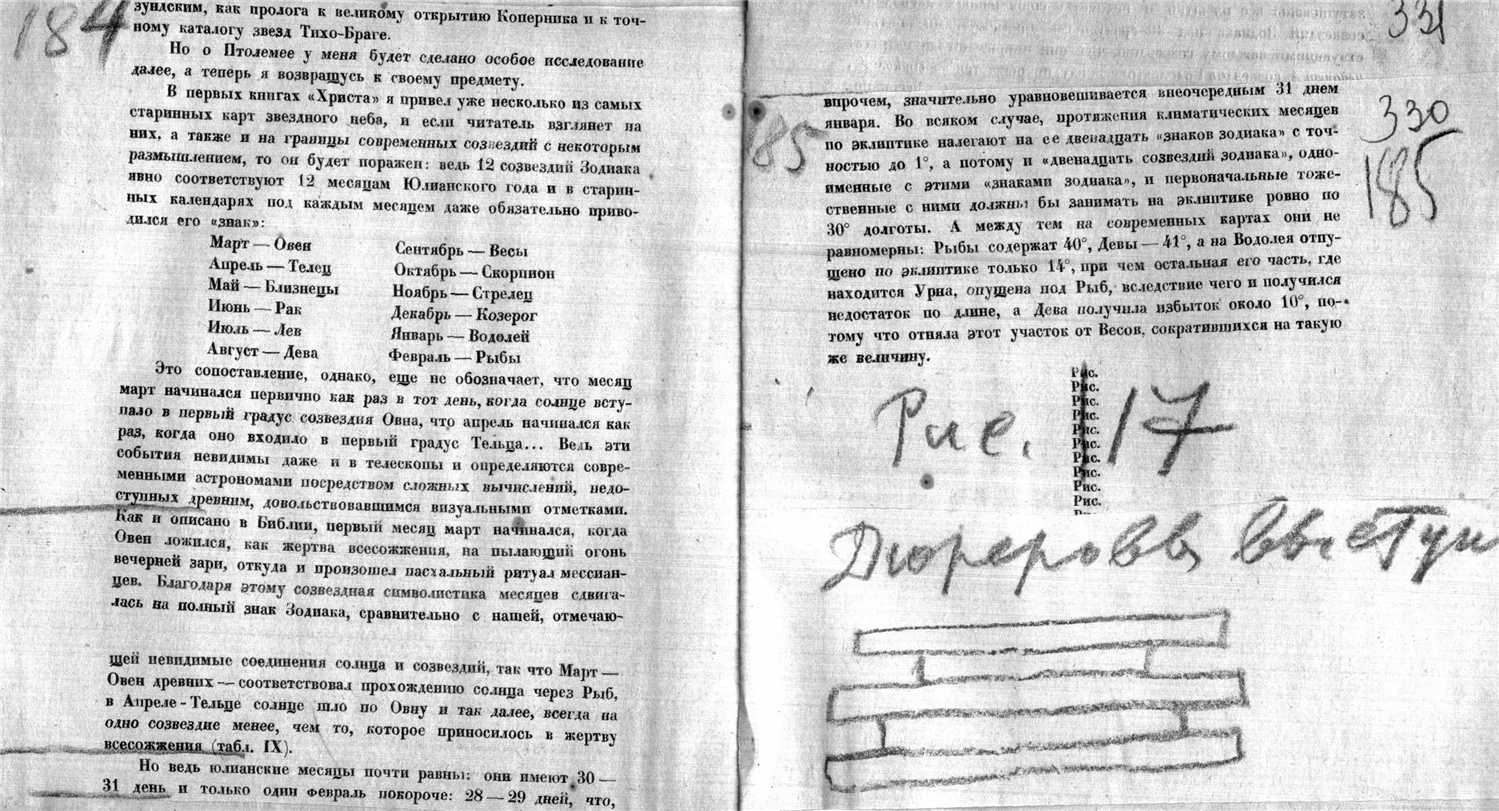 184
зундским, как пролога к великому открытию Коперника и к точ-
ному каталогу звезд Тихо-Браге.
Но о Птолемее у меня будет сделано особое исследование
далее, а теперь я возвращусь к своему предмету.
В первых книгах «Христа» я привел уже несколько из самых
старинных карт звездного неба, и если читатель взглянет на
них, а также и на границы современных созвездий с некоторым
размышлением, то он будет поражен: ведь 12 созвездий Зодиака
явно соответствуют 12 месяцам Юлианского года и в старин-
ных календарях под каждым месяцем даже обязательно приво-
дился его «знак»:
Март — Овен
Апрель — Телец
Май — Близнецы
Июнь — Рак
Июль — Лев
Август — Дева
Сентябрь — Весы
Октябрь — Скорпион
Ноябрь — Стрелец
Декабрь — Козерог
Январь — Водолей
Февраль — Рыбы
Это сопоставление, однако, еще не обозначает, что месяц
март начинался первично как раз в тот день, когда солнце всту-
пало в первый градус созвездия Овна, что апрель начинался как
раз, когда оно входило в первый градус Тельца... Ведь эти
события невидимы даже и в телескопы и определяются совре-
менными астрономами посредством сложных вычислений, недо-
ступных древним, довольствовавшимся визуальными отметками.
Как и описано в Библии, первый месяц март начинался, когда
Овен ложился, как жертва всесожжения, на пылающий огонь
вечерней зари, откуда и произошел пасхальный ритуал мессиан-
цев. Благодаря этому созвездная символистика месяцев сдвига-
лась на полный знак Зодиака, сравнительно с нашей, отмечаю-
щей невидимые соединения солнца и созвездий, так что Март —
Овен древних — соответствовал прохождению солнца через Рыб,
в Апреле-Тельце солнце шло по Овну и так далее, всегда на
одно созвездие менее, чем то, которое приносилось в жертву
всесожжения (табл. IX).
Но ведь юлианские месяцы почти равны: они имеют 30 —
31 день и только один февраль покороче: 28 — 29 дней, что,
331
330
185
185
впрочем, значительно уравновешивается внеочередным 31 днем
января. Во всяком случае, протяжения климатических месяцев
по эклиптике налегают на ее двенадцать «знаков зодиака» с точ-
ностью до 1°, а потому и «двенадцать созвездий зодиака», одно-
именные с этими «знаками зодиака», и первоначальные тоже-
ственные с ними должны бы занимать на эклиптике ровно по
30° долготы. А между тем на современных картах они не
равномерны: Рыбы содержат 40°, Девы — 41°, а на Водолея отпу-
щено по эклиптике только 14°, при чем остальная его часть, где
находится Урна, опущена под Рыб, вследствие чего и получился
недостаток по длине, а Дева получила избыток около 10°, по-
тому что отняла этот участок от Весов, сократившихся на такую
же величину.
Рис.
Рис.
Рис.
Рис.
Рис.
Рис.
Рис.
Рис.
Рис.
Рис.
Рис. 17